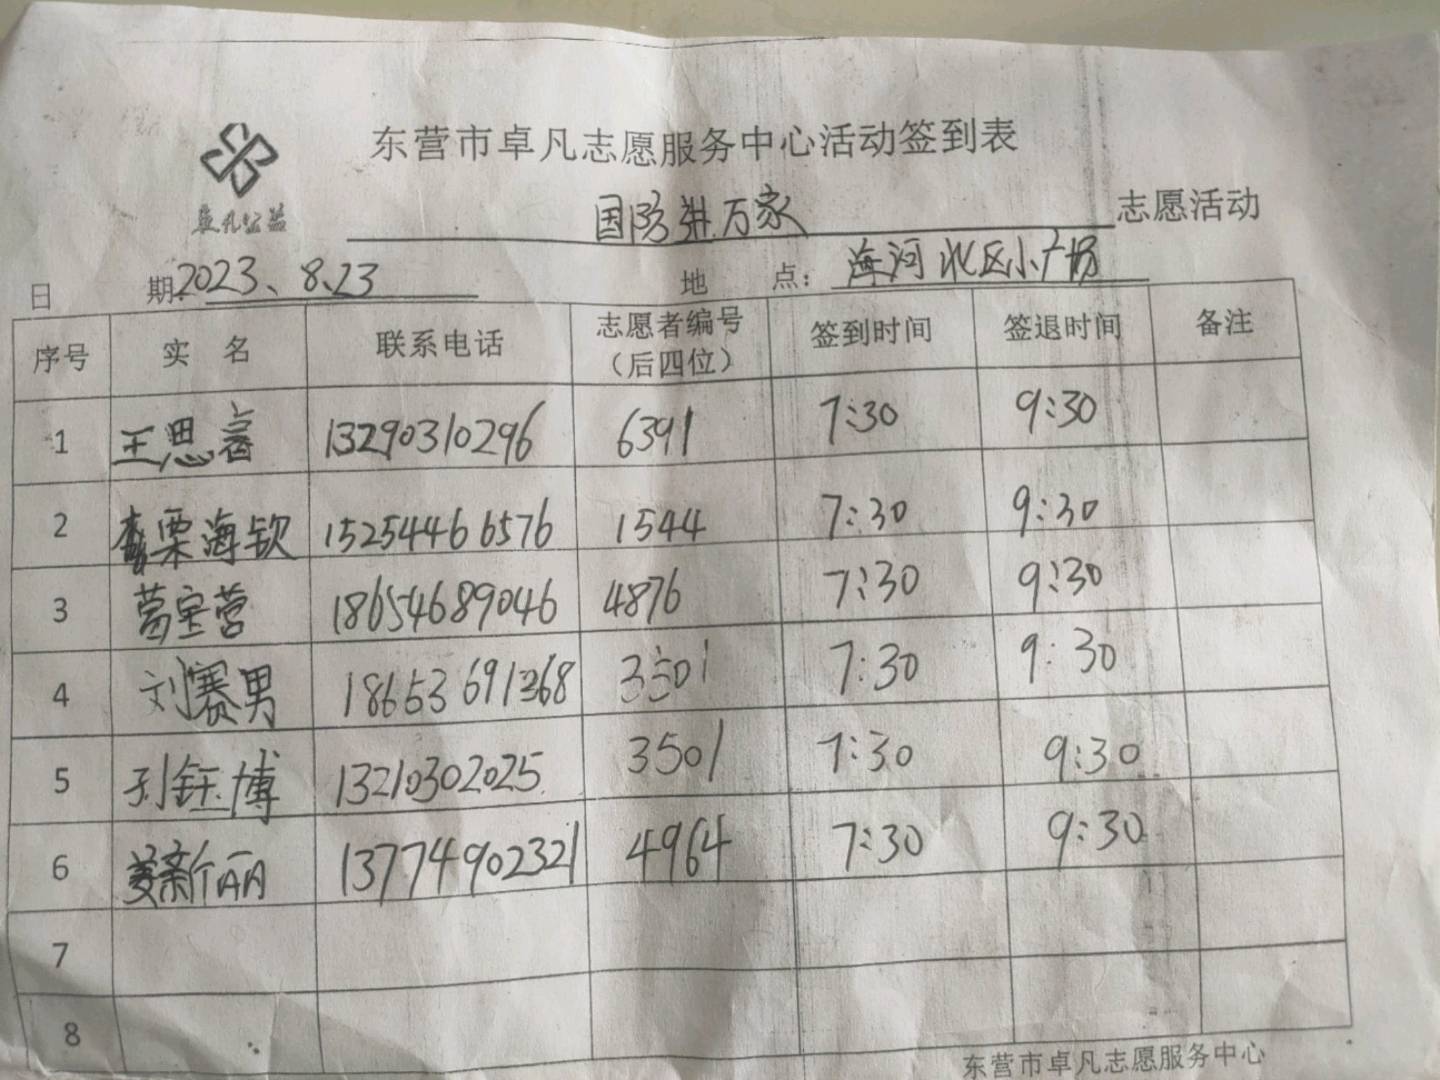 东营市卓凡志愿服务中心活动签到表
卓凡公益
国防进万家 志愿活动
日 期: 2023、8.23 地 点: 海河北区小广场
序号 实 名 联系电话 志愿者编号（后四位） 签到时间 签退时间 备注
1 王思睿 13290310296 6391 7:30 9:30
2 栗海钦 15254466576 1544 7:30 9:30
3 葛宝营 18654689046 4876 7:30 9:30
4 刘赛男 7:30 9:30
5 孙钰博 13210302025 3501 7:30 9:30
6 姜新丽 13774902321 4964 7:30 9:30
7
8
东营市卓凡志愿服务中心